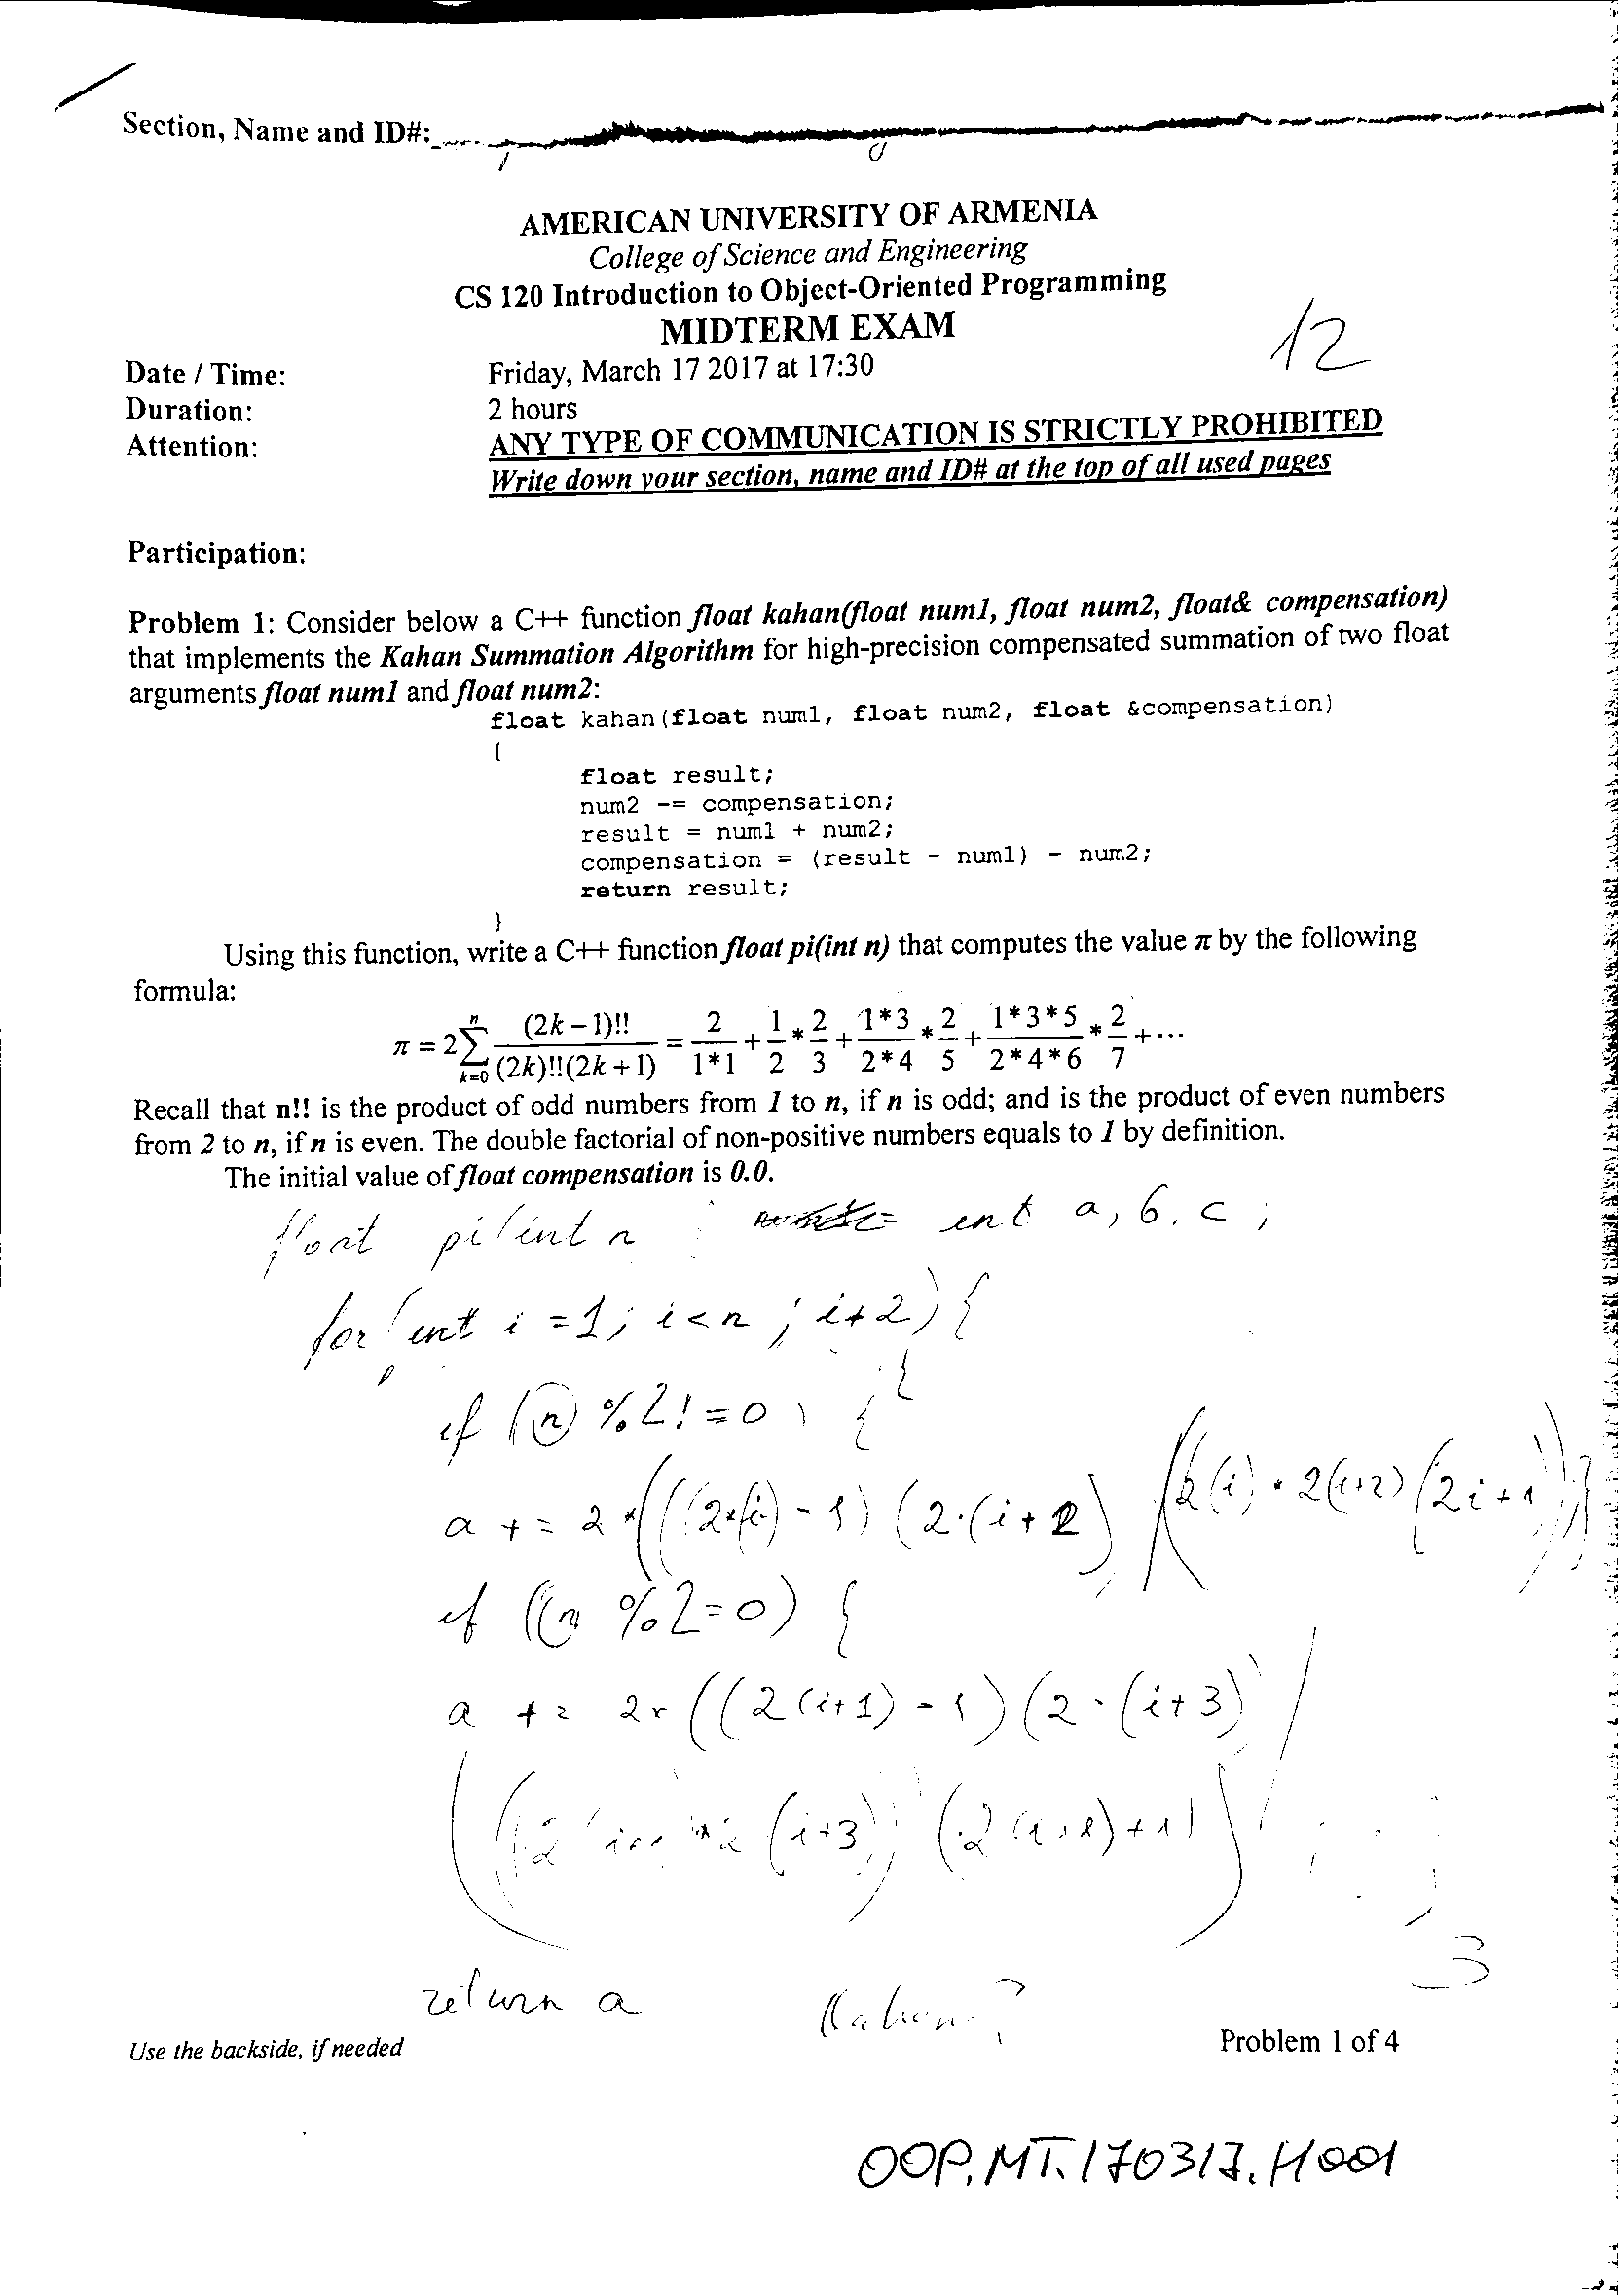 Section, Name and ID#:
AMERICAN UNIVERSITY OF ARMENIA
College of Science and Engineering
CS 120 Introduction to Object-Oriented Programming
MIDTERM EXAM
12
Date / Time: Friday, March 17 2017 at 17:30
Duration: 2 hours
Attention: ANY TYPE OF COMMUNICATION IS STRICTLY PROHIBITED
Write down your section, name and ID# at the top of all used pages
Participation:
Problem 1: Consider below a C++ function float kahan(float num1, float num2, float& compensation)
that implements the Kahan Summation Algorithm for high-precision compensated summation of two float
arguments float num1 and float num2:
float kahan(float num1, float num2, float &compensation)
{
float result;
num2 -= compensation;
result = num1 + num2;
compensation = (result - num1) - num2;
return result;
}
Using this function, write a C++ function float pi(int n) that computes the value π by the following
formula:
π = 2 ∑_{k=0}^{n} (2k-1)!! / ((2k)!!(2k+1)) = 2/(1*1) + 1/2 * 2/3 + (1*3)/(2*4) * 2/5 + (1*3*5)/(2*4*6) * 2/7 + ...
Recall that n!! is the product of odd numbers from 1 to n, if n is odd; and is the product of even numbers
from 2 to n, if n is even. The double factorial of non-positive numbers equals to 1 by definition.
The initial value of float compensation is 0.0.
float pi(int n int a, b, c;
for(int i =1; i<n ; i+2) {
if (n) %2!=0) {
a += 2*(((2*(i)-1)(2·(i+2) /(2(i)·2(i+2)(2i+1))}
if ((n %2=0) {
a += 2*((2(i+1)-1)(2·(i+3) /
((2 (i+3)) (2 +1)
3
return a Kahan?
Use the backside, if needed Problem 1 of 4
OOP.MT.170317.H001